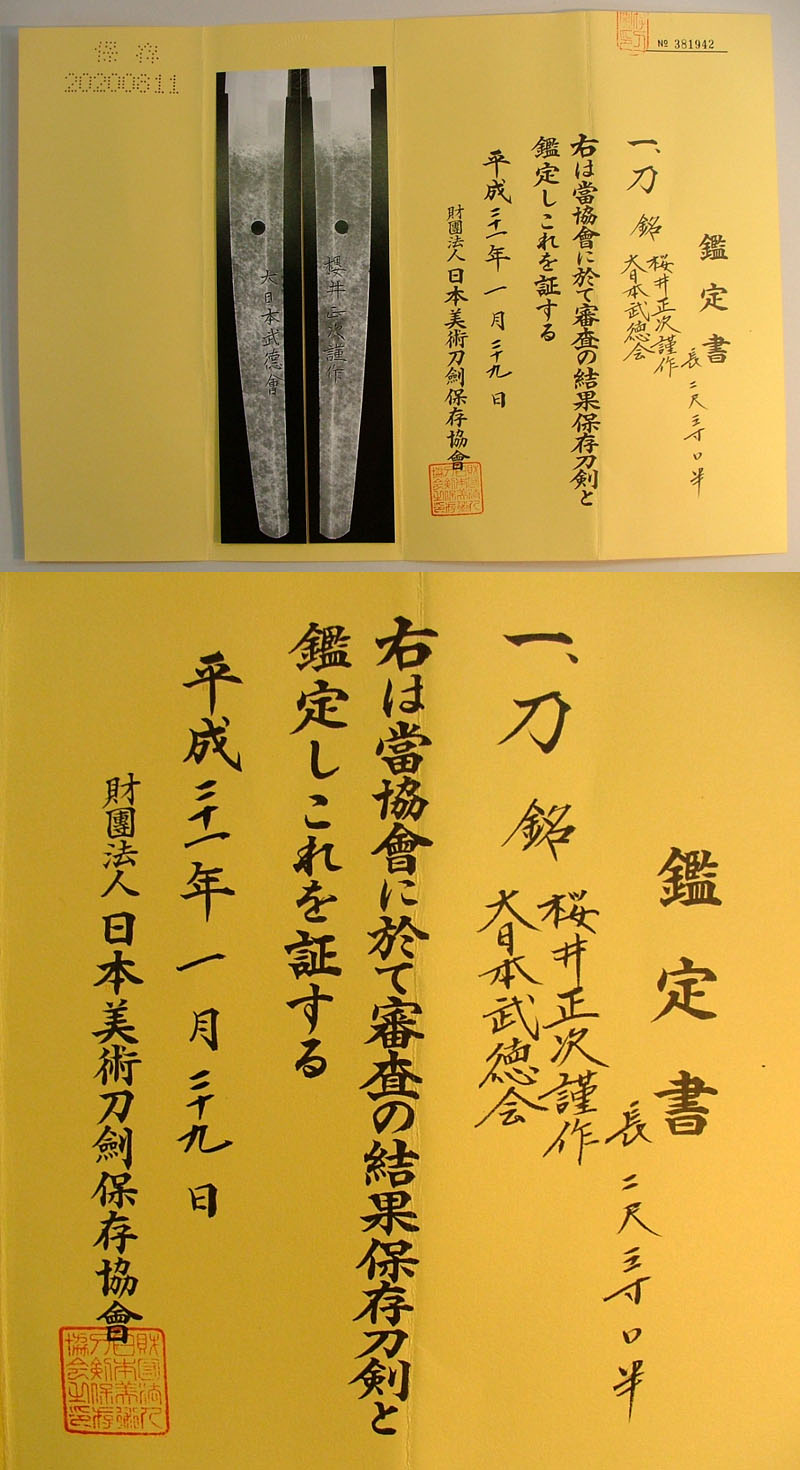 № 381942
鑑定書
長二尺三寸〇半
一、刀 銘 桜井正次謹作
大日本武徳会
右は當協會に於て審査の結果保存刀剣と
鑑定しこれを証する
平成二十一年一月二十九日
財團法人 日本美術刀劍保存協會
櫻井正次謹作
大日本武徳會
保存
20200811
鑑定書
長二尺三寸〇半
一、刀 銘 桜井正次謹作
大日本武徳会
右は當協會に於て審査の結果保存刀剣と
鑑定しこれを証する
平成二十一年一月二十九日
財團法人 日本美術刀劍保存協會